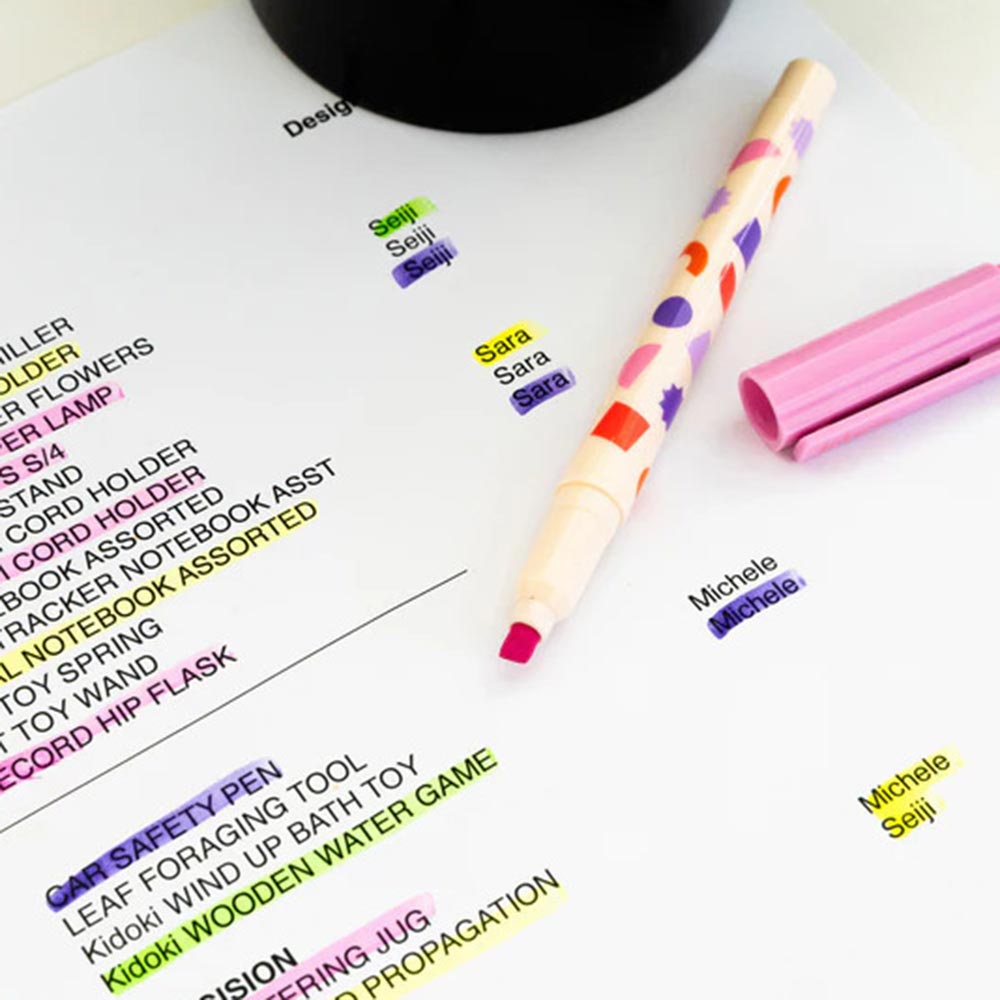 Design
Seiji
Seiji
Seiji
Sara
Sara
Sara
FLOWERS
LAMP
S/4
STAND
CORD HOLDER
CORD HOLDER
ASSORTED
TRACKER NOTEBOOK ASST
NOTEBOOK ASSORTED
TOY SPRING
TOY WAND
HIP FLASK
Michele
Michele
CAR SAFETY PEN
LEAF FORAGING TOOL
Kidoki WIND UP BATH TOY
Kidoki WOODEN WATER GAME
Michele
Seiji
JUG
PROPAGATION